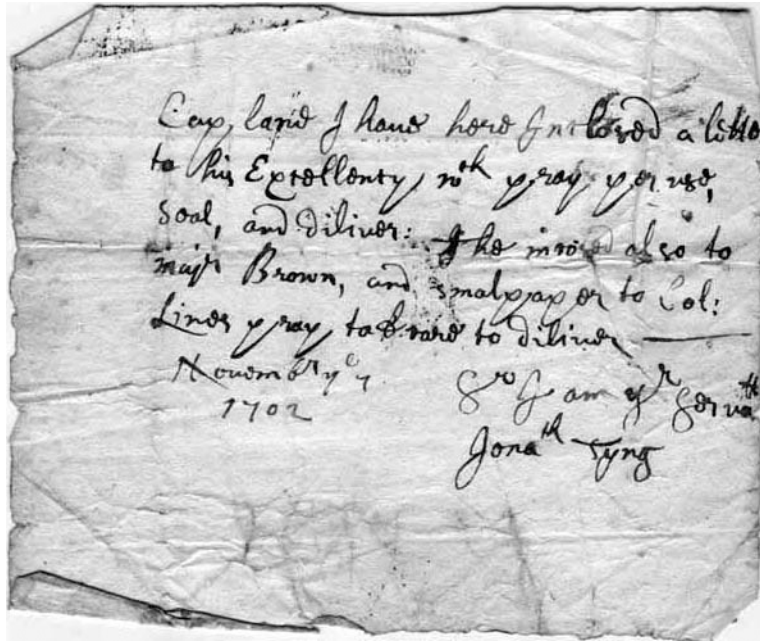 Cap lane I have here Inclosed a lette
to his Excellency, wth pray peruse,
Seal, and diliver: The also to
majr Brown, and smal paper to Col:
Lines pray take care to diliver
Novembr ye 7
1702
Sr I am yr Servatt
Jonath Tyng